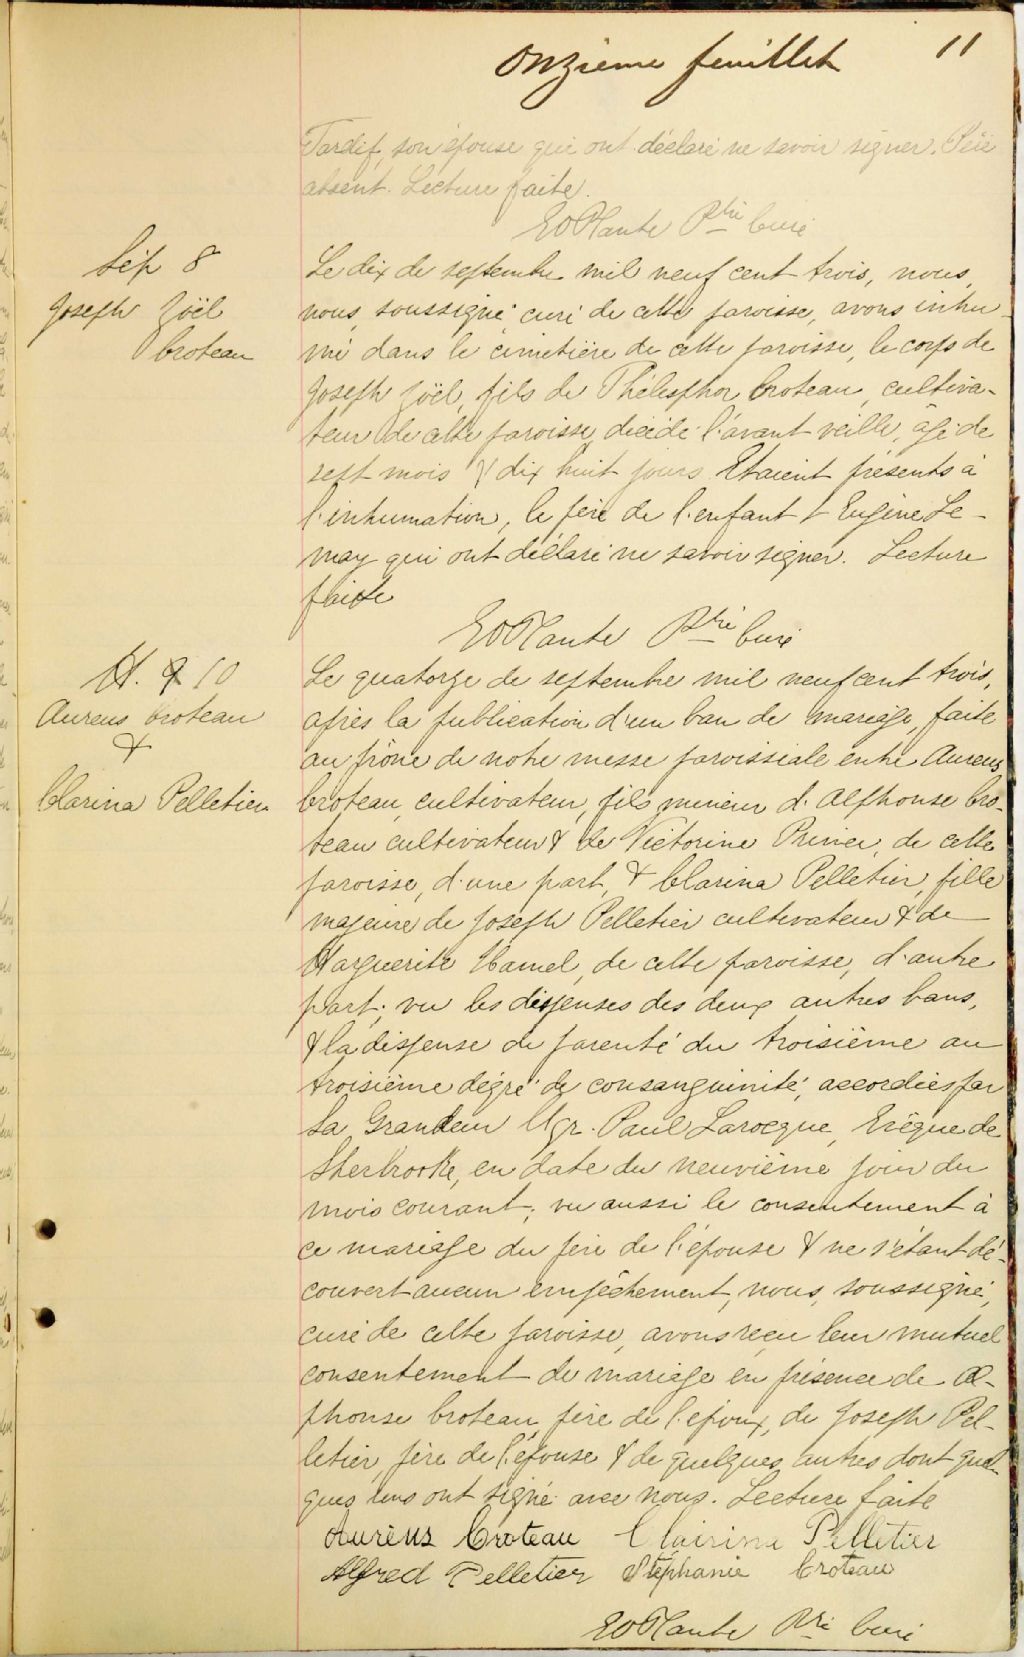 Onzième feuillet 11
Tardif, son épouse qui ont déclaré ne savoir signer. Père
absent. Lecture faite.
EOPlante Ptre Curé
Sép 8
Joseph Joël
Croteau
Le dix de septembre mil neuf cent trois, nous,
nous, soussigné, curé de cette paroisse, avons inhu-
mé dans le cimetière de cette paroisse, le corps de
Joseph Joël, fils de Thélesphor Croteau, cultiva-
teur de cette paroisse, décédé l'avant veille, âgé de
sept mois & dix huit jours. Etaient présents à
l'inhumation, le père de l'enfant & Eugène Le-
may qui ont déclaré ne savoir signer. Lecture
faite
EOPlante Ptre Curé
M. 9 10
Aureus Croteau
&
Clarina Pelletier
Le quatorze de septembre mil neuf cent trois,
après la publication d'un ban de mariage, faite
au prône de notre messe paroissiale entre Aureus
Croteau, cultivateur, fils mineur d'Alphonse Cro-
teau cultivateur & de Victorine Primer, de cette
paroisse, d'une part, & Clarina Pelletier, fille
majeure de Joseph Pelletier cultivateur & de
Marguerite Hamel, de cette paroisse, d'autre
part; vu les dispenses des deux autres bans,
& la dispense de parenté du troisième au
troisième dégré de consanguinité, accordées par
Sa Grandeur Mgr. Paul Larocque, Evêque de
Sherbrooke, en date du neuvième jour du
mois courant; vu aussi le consentement à
ce mariage du père de l'épouse & ne s'étant dé-
couvert aucun empêchement, nous, soussigné,
curé de cette paroisse, avons reçu leur mutuel
consentement de mariage en présence de Al-
phonse Croteau, père de l'époux, de Joseph Pel-
letier, père de l'épouse & de quelques autres dont quel-
ques uns ont signé avec nous. Lecture faite
Aurèus Croteau Clairina Pelletier
Alfred Pelletier Stéphanie Croteau
EOPlante Ptre Curé